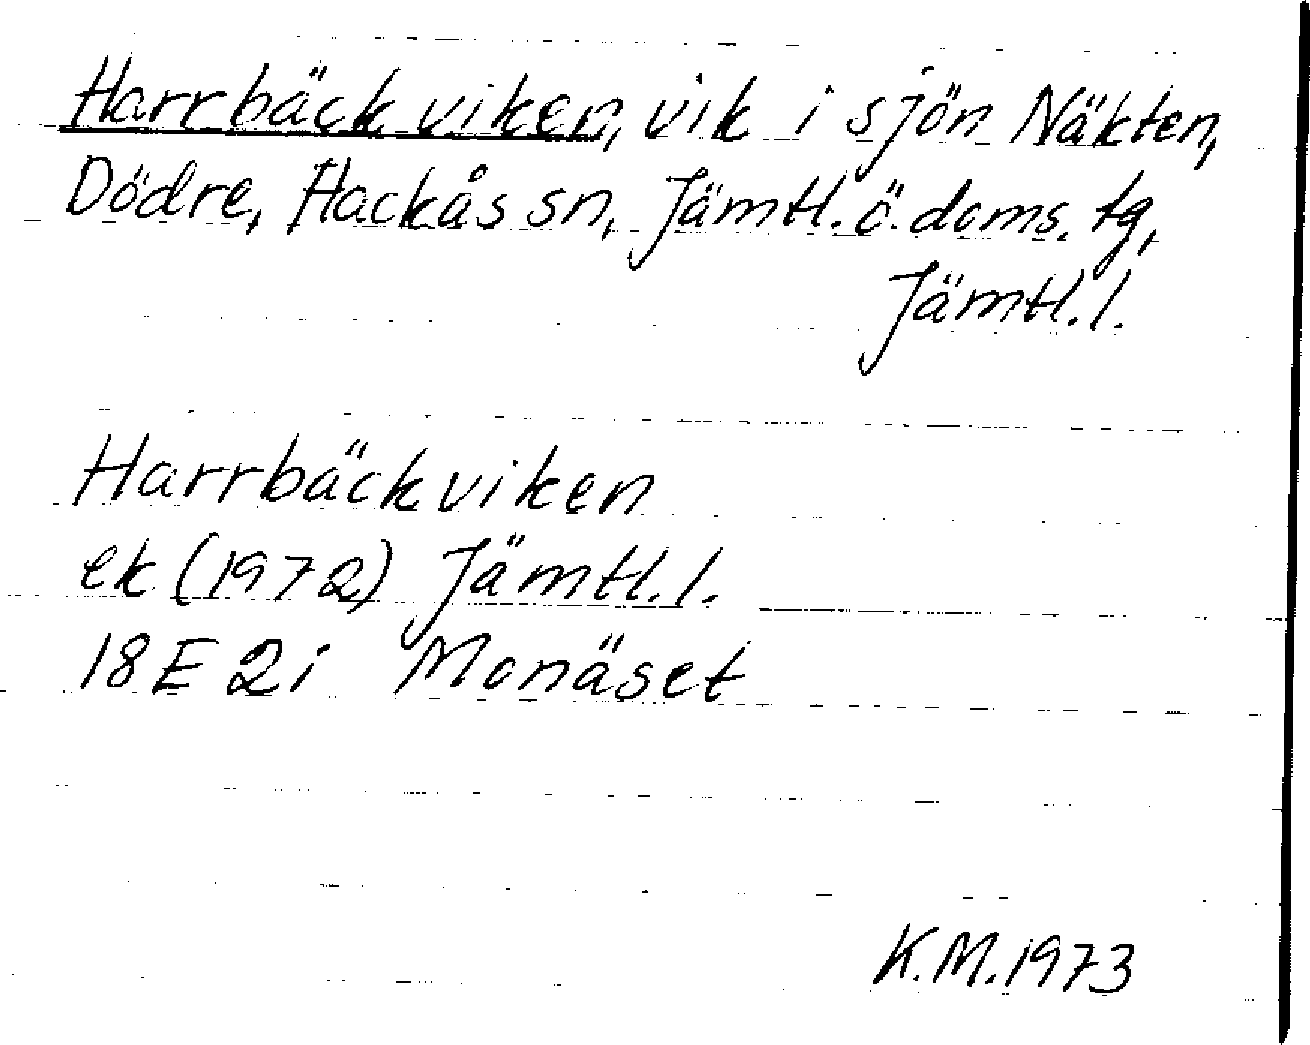 Harrbäckviken, vik i sjön Näkten,
Dödre, Hackås sn, Jämtl. ö. doms. tg,
Jämtl. l.
Harrbäckviken
ek (1972) Jämtl. l.
18E 2i Monäset
K.M. 1973